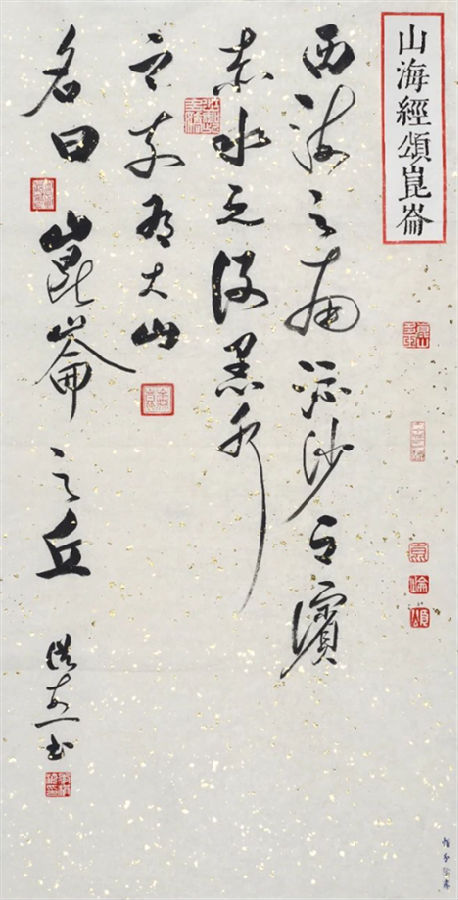 山海經頌崑崙
西海之南流沙之濱
赤水之後黑水
之前有大山
名曰崑崙之丘
書
崑
崙
頌